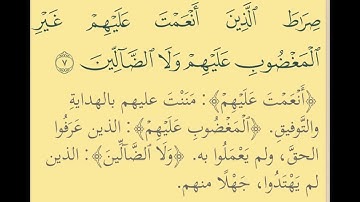 صِرَٰطَ ٱلَّذِينَ أَنۡعَمۡتَ عَلَيۡهِمۡ غَيۡرِ
ٱلۡمَغۡضُوبِ عَلَيۡهِمۡ وَلَا ٱلضَّآلِّينَ ٧
﴿أَنْعَمْتَ عَلَيْهِمْ﴾: مَنَنْتَ عليهم بالهدايةِ
والتَّوفيقِ. ﴿الْمَغْضُوبِ عَلَيْهِمْ﴾: الذين عَرَفُوا
الحقَّ، ولم يَعْمَلُوا به. ﴿وَلَا الضَّآلِّينَ﴾: الذين
لم يَهْتَدُوا، جَهْلًا منهم.